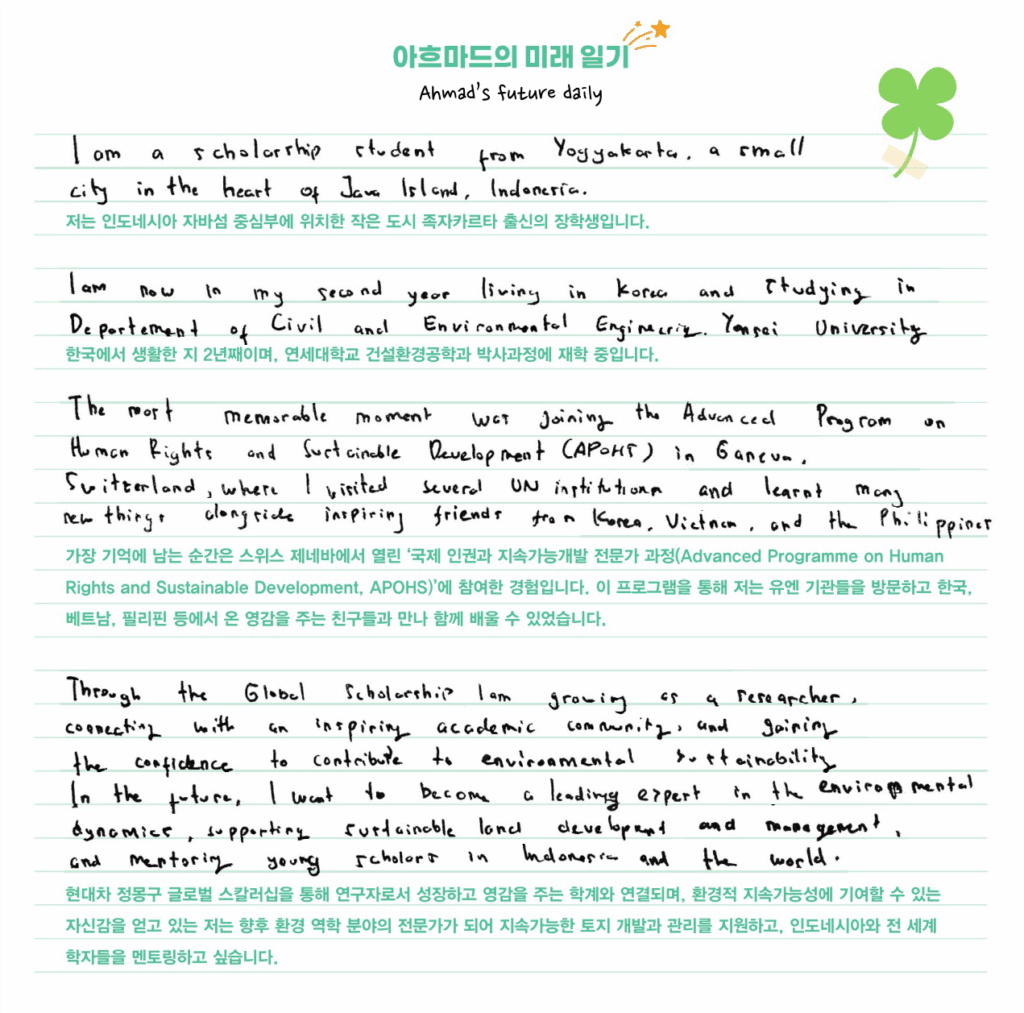 아흐마드의 미래 일기
Ahmad's future daily
I am a scholarship student from Yogyakarta, a small
city in the heart of Java Island, Indonesia.
저는 인도네시아 자바섬 중심부에 위치한 작은 도시 족자카르타 출신의 장학생입니다.
I am now in my second year living in Korea and studying in
Departement of Civil and Environmental Engineering. Yonsei University
한국에서 생활한 지 2년째이며, 연세대학교 건설환경공학과 박사과정에 재학 중입니다.
The most memorable moment was joining the Advanced Program on
Human Rights and Sustainable Development (APOHS) in Ganeva,
Switzerland, where I visited several UN institutions and learnt many
new things alongside inspiring friends from Korea, Vietnam, and the Philippines
가장 기억에 남는 순간은 스위스 제네바에서 열린 ‘국제 인권과 지속가능개발 전문가 과정(Advanced Programme on Human
Rights and Sustainable Development, APOHS)’에 참여한 경험입니다. 이 프로그램을 통해 저는 유엔 기관들을 방문하고 한국,
베트남, 필리핀 등에서 온 영감을 주는 친구들과 만나 함께 배울 수 있었습니다.
Through the Global Scholarship I am growing as a researcher,
connecting with an inspiring academic community, and gaining
the confidence to contribute to environmental sustainability
In the future, I want to become a leading expert in the environmental
dynamics, supporting sustainable land development and management,
and mentoring young scholars in Indonesia and the world.
현대차 정몽구 글로벌 스칼러십을 통해 연구자로서 성장하고 영감을 주는 학계와 연결되며, 환경적 지속가능성에 기여할 수 있는
자신감을 얻고 있는 저는 향후 환경 역학 분야의 전문가가 되어 지속가능한 토지 개발과 관리를 지원하고, 인도네시아와 전 세계
학자들을 멘토링하고 싶습니다.